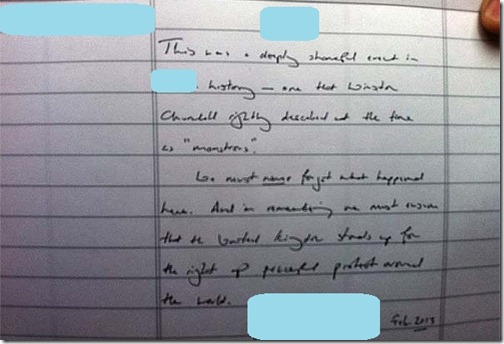 This was a deeply shameful event in
history – one that Winston
Churchill rightly described at the time
as "monstrous".
We must never forget what happened
here. And in remembering we must ensure
that the United Kingdom stands up for
the right of peaceful protest around
the world.
Feb. 2013